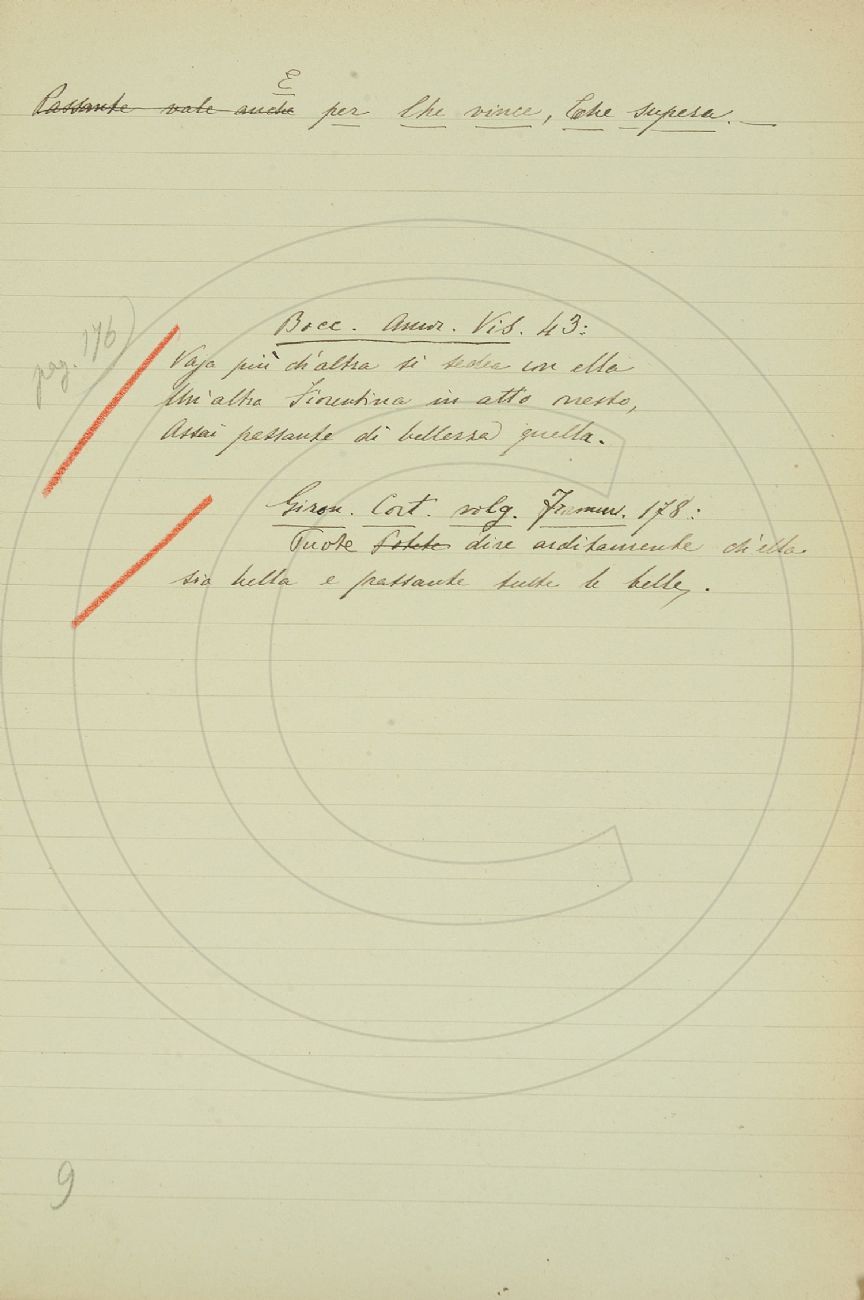 E
Passante vale anche per Che vince, Che supera.
pag. 176)
Bocc. Amor. Vis. 43:
Vaga più ch'altra si sedea con ella
Un'altra Fiorentina in atto onesto,
Assai passante di bellezza quella.
Giron. Cort. volg. 178:
Puote Potete dire arditamente ch'ella
sia bella e passante tutte le belle.
9